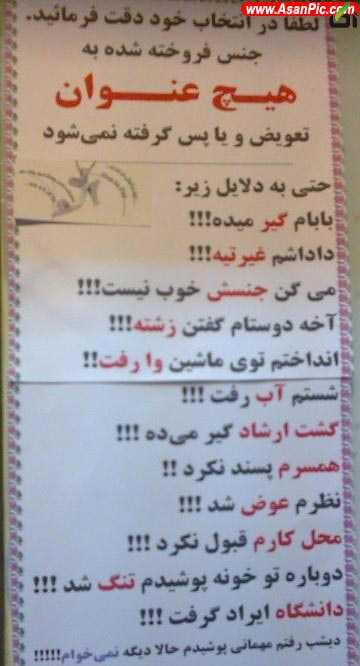 www.AsanPic.com
لطفا در انتخاب خود دقت فرمائید.
جنس فروخته شده به
هیـچ عنـــوان
تعویض و یا پس گرفته نمی‌شود
حتی به دلایل زیر:
بابام گیر میده!!!
داداشم غیرتیه!!!
می گن جنسش خوب نیست!!!
آخه دوستام گفتن زشته!!!
انداختم توی ماشین وا رفت!!
شستم آب رفت !!!
گشت ارشاد گیر می‌ده !!!
همسرم پسند نکرد !!
نظرم عوض شد !!!
محل کارم قبول نکرد !!!
دوباره تو خونه پوشیدم تنگ شد !!!
دانشگاه ایراد گرفت !!!
دیشب رفتم مهمانی پوشیدم حالا دیگه نمی‌خوام!!!!!